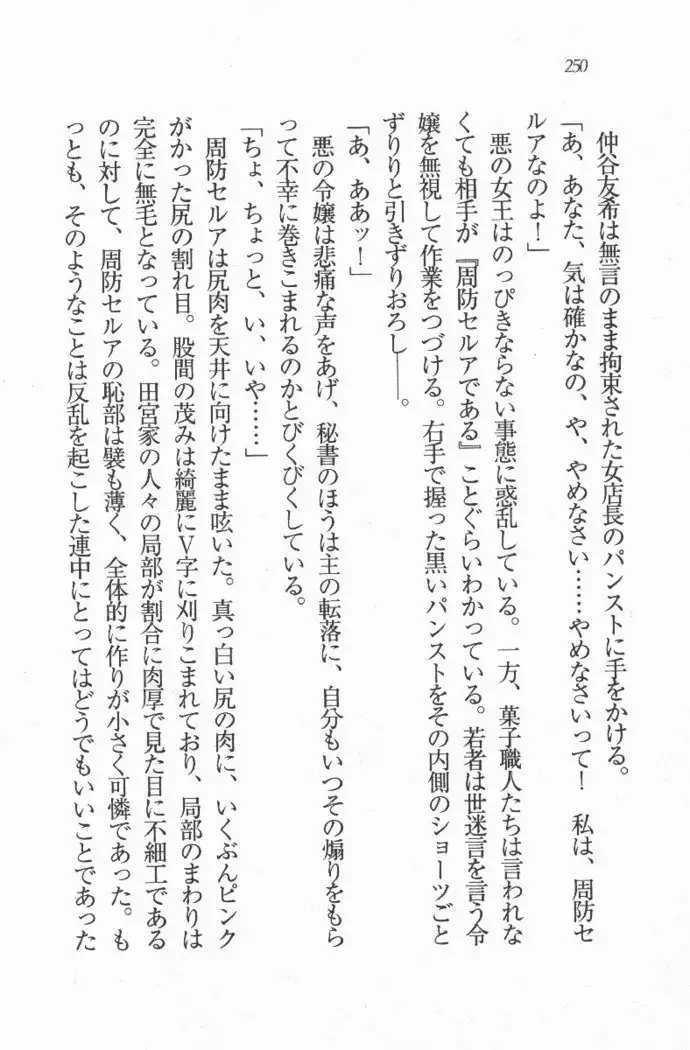 250
仲谷友希は無言のまま拘束された女店長のパンストに手をかける。
「あ、あなた、気は確かなの、や、やめなさい……やめなさいって！　私は、周防セ
ルアなのよ！」
悪の女王はのっぴきならない事態に惑乱している。一方、菓子職人たちは言われな
くても相手が『周防セルアである』ことぐらいわかっている。若者は世迷言を言う令
嬢を無視して作業をつづける。右手で握った黒いパンストをその内側のショーツごと
ずりりと引きずりおろし――。
「あ、ああッ！」
悪の令嬢は悲痛な声をあげ、秘書のほうは主の転落に、自分もいつその煽りをもら
って不幸に巻きこまれるのかとびくびくしている。
「ちょ、ちょっと、い、いや……」
周防セルアは尻肉を天井に向けたまま呟いた。真っ白い尻の肉に、いくぶんピンク
がかった尻の割れ目。股間の茂みは綺麗にV字に刈りこまれており、局部のまわりは
完全に無毛となっている。田宮家の人々の局部が割合に肉厚で見た目に不細工である
のに対して、周防セルアの恥部は襞も薄く、全体的に作りが小さく可憐であった。も
っとも、そのようなことは反乱を起こした連中にとってはどうでもいいことであった